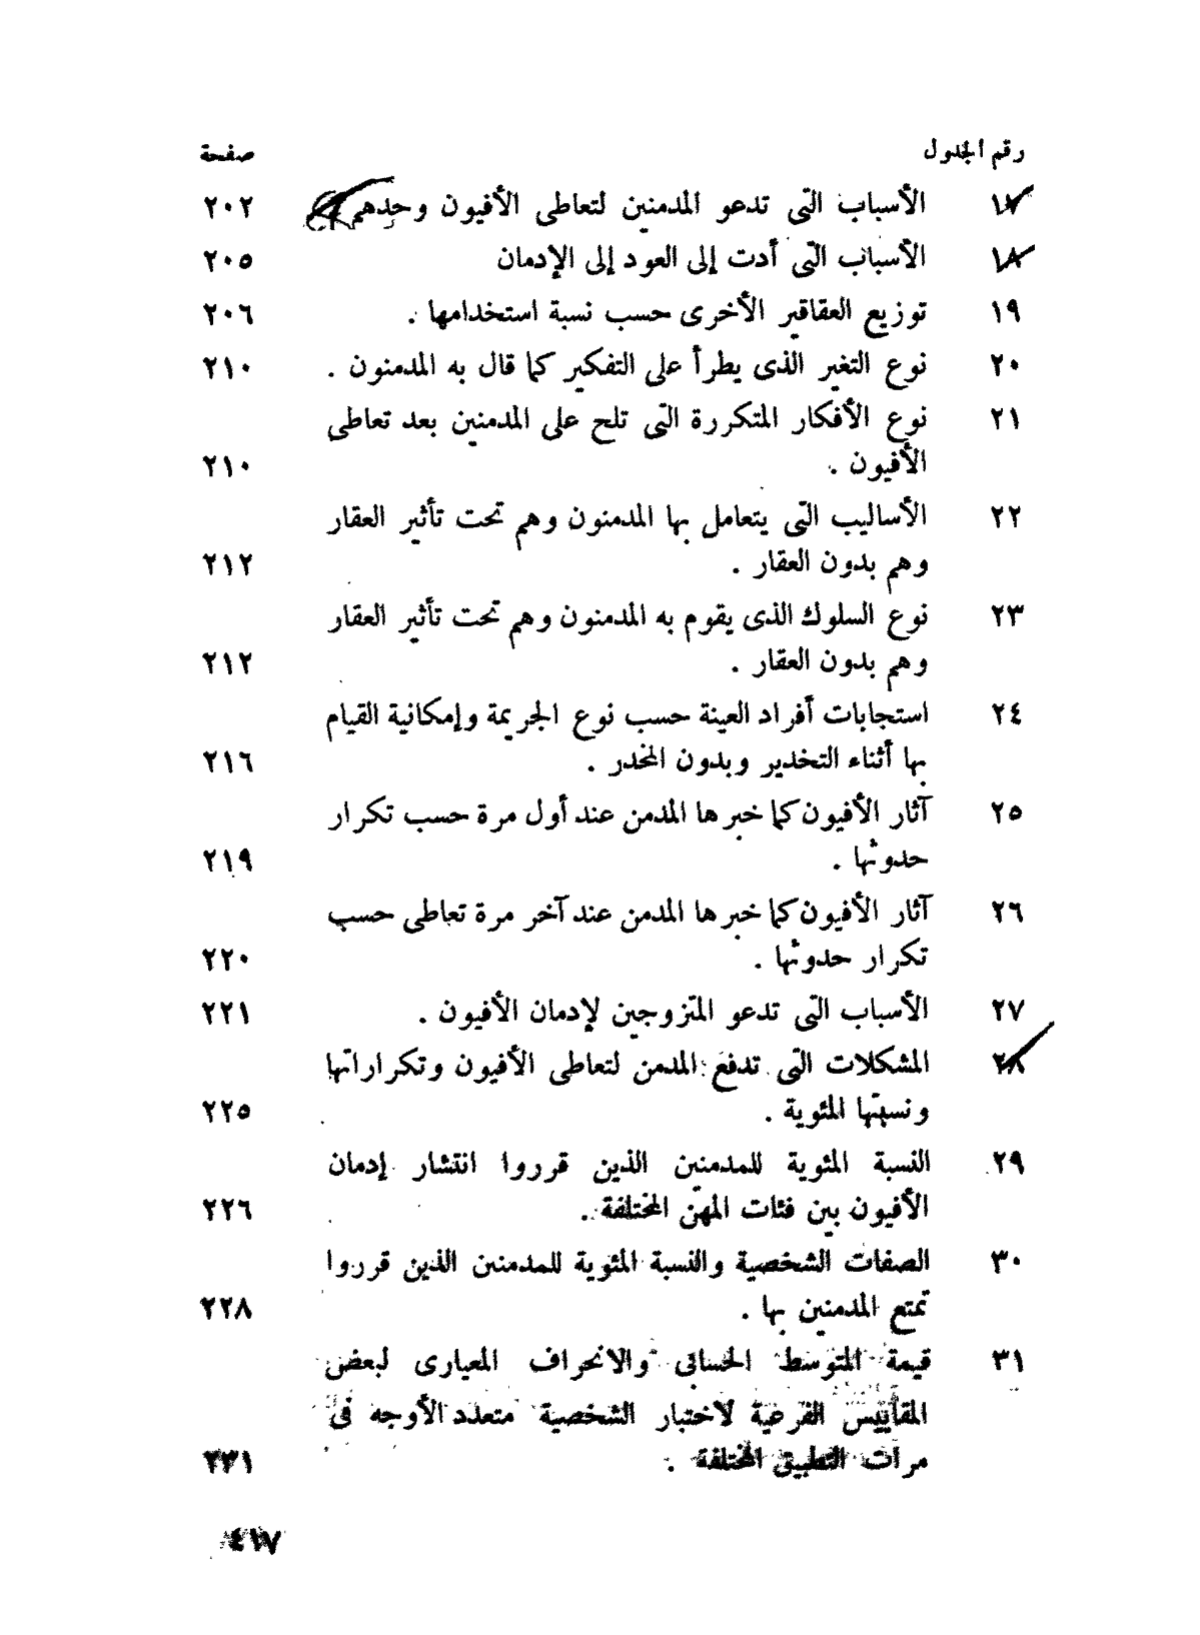 رقم الجدول صفحة
١٧ الأسباب التى تدعو المدمنين لتعاطى الأفيون وحدهم ٢٠٢
١٨ الأسباب التى أدت إلى العود إلى الإدمان ٢٠٥
١٩ توزيع العقاقير الأخرى حسب نسبة استخدامها . ٢٠٦
٢٠ نوع التغير الذى يطرأ على التفكير كما قال به المدمنون . ٢١٠
٢١ نوع الأفكار المتكررة التى تلح على المدمنين بعد تعاطى
الأفيون . ٢١٠
٢٢ الأساليب التى يتعامل بها المدمنون وهم تحت تأثير العقار
وهم بدون العقار . ٢١٢
٢٣ نوع السلوك الذى يقوم به المدمنون وهم تحت تأثير العقار
وهم بدون العقار . ٢١٢
٢٤ استجابات أفراد العينة حسب نوع الجريمة وإمكانية القيام
بها أثناء التخدير وبدون المخدر . ٢١٦
٢٥ آثار الأفيون كما خبرها المدمن عند أول مرة حسب تكرار
حدوثها . ٢١٩
٢٦ آثار الأفيون كما خبرها المدمن عند آخر مرة تعاطى حسب
تكرار حدوثها . ٢٢٠
٢٧ الأسباب التى تدعو المتزوجين لإدمان الأفيون . ٢٢١
٢٨ المشكلات التى تدفع المدمن لتعاطى الأفيون وتكراراتها
ونسبتها المئوية . ٢٢٥
٢٩ النسبة المئوية للمدمنين الذين قرروا انتشار إدمان
الأفيون بين فئات المهن المختلفة . ٢٢٦
٣٠ الصفات الشخصية والنسبة المئوية للمدمنين الذين قرروا
تمتع المدمنين بها . ٢٢٨
٣١ قيمة المتوسط الحسابى والانحراف المعيارى لبعض
المقاييس الفرعية لاختبار الشخصية متعدد الأوجه فى
مرات التطبيق المختلفة . ٢٣١
٤١٧